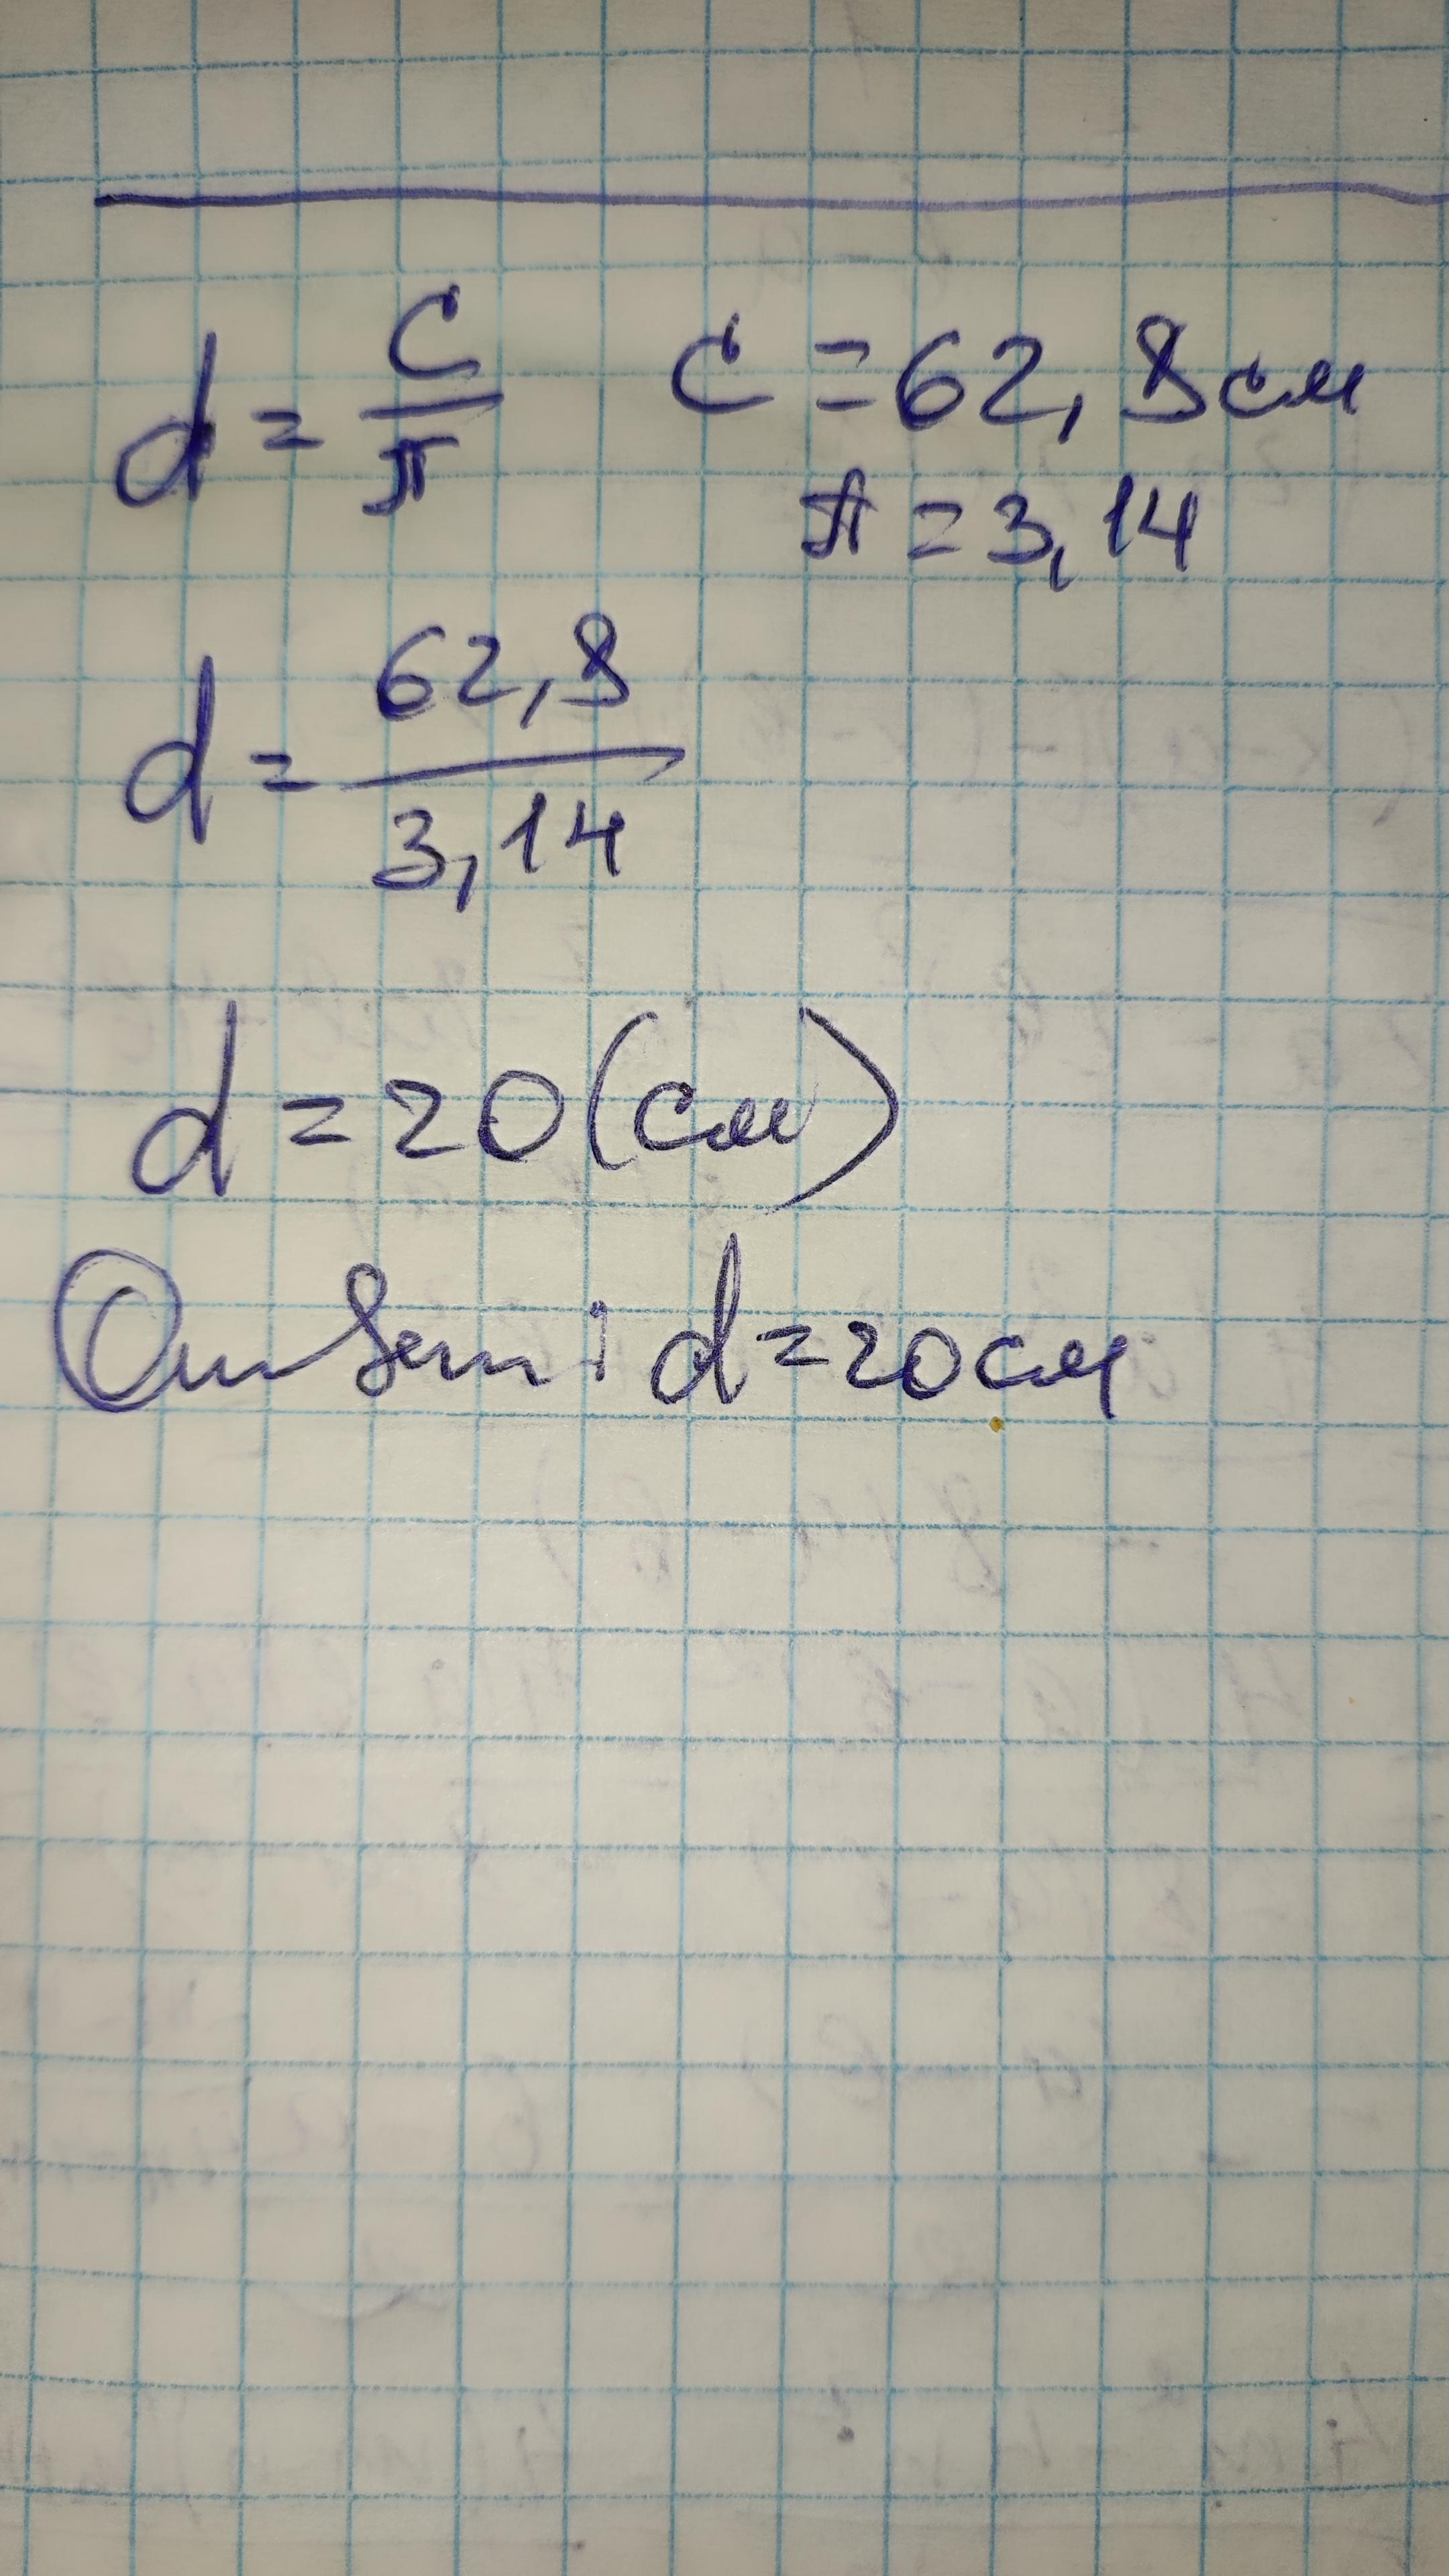 d = C/π C = 62,8 см
π = 3,14
d = 62,8/3,14
d = 20 (см)
Ответ: d = 20 см